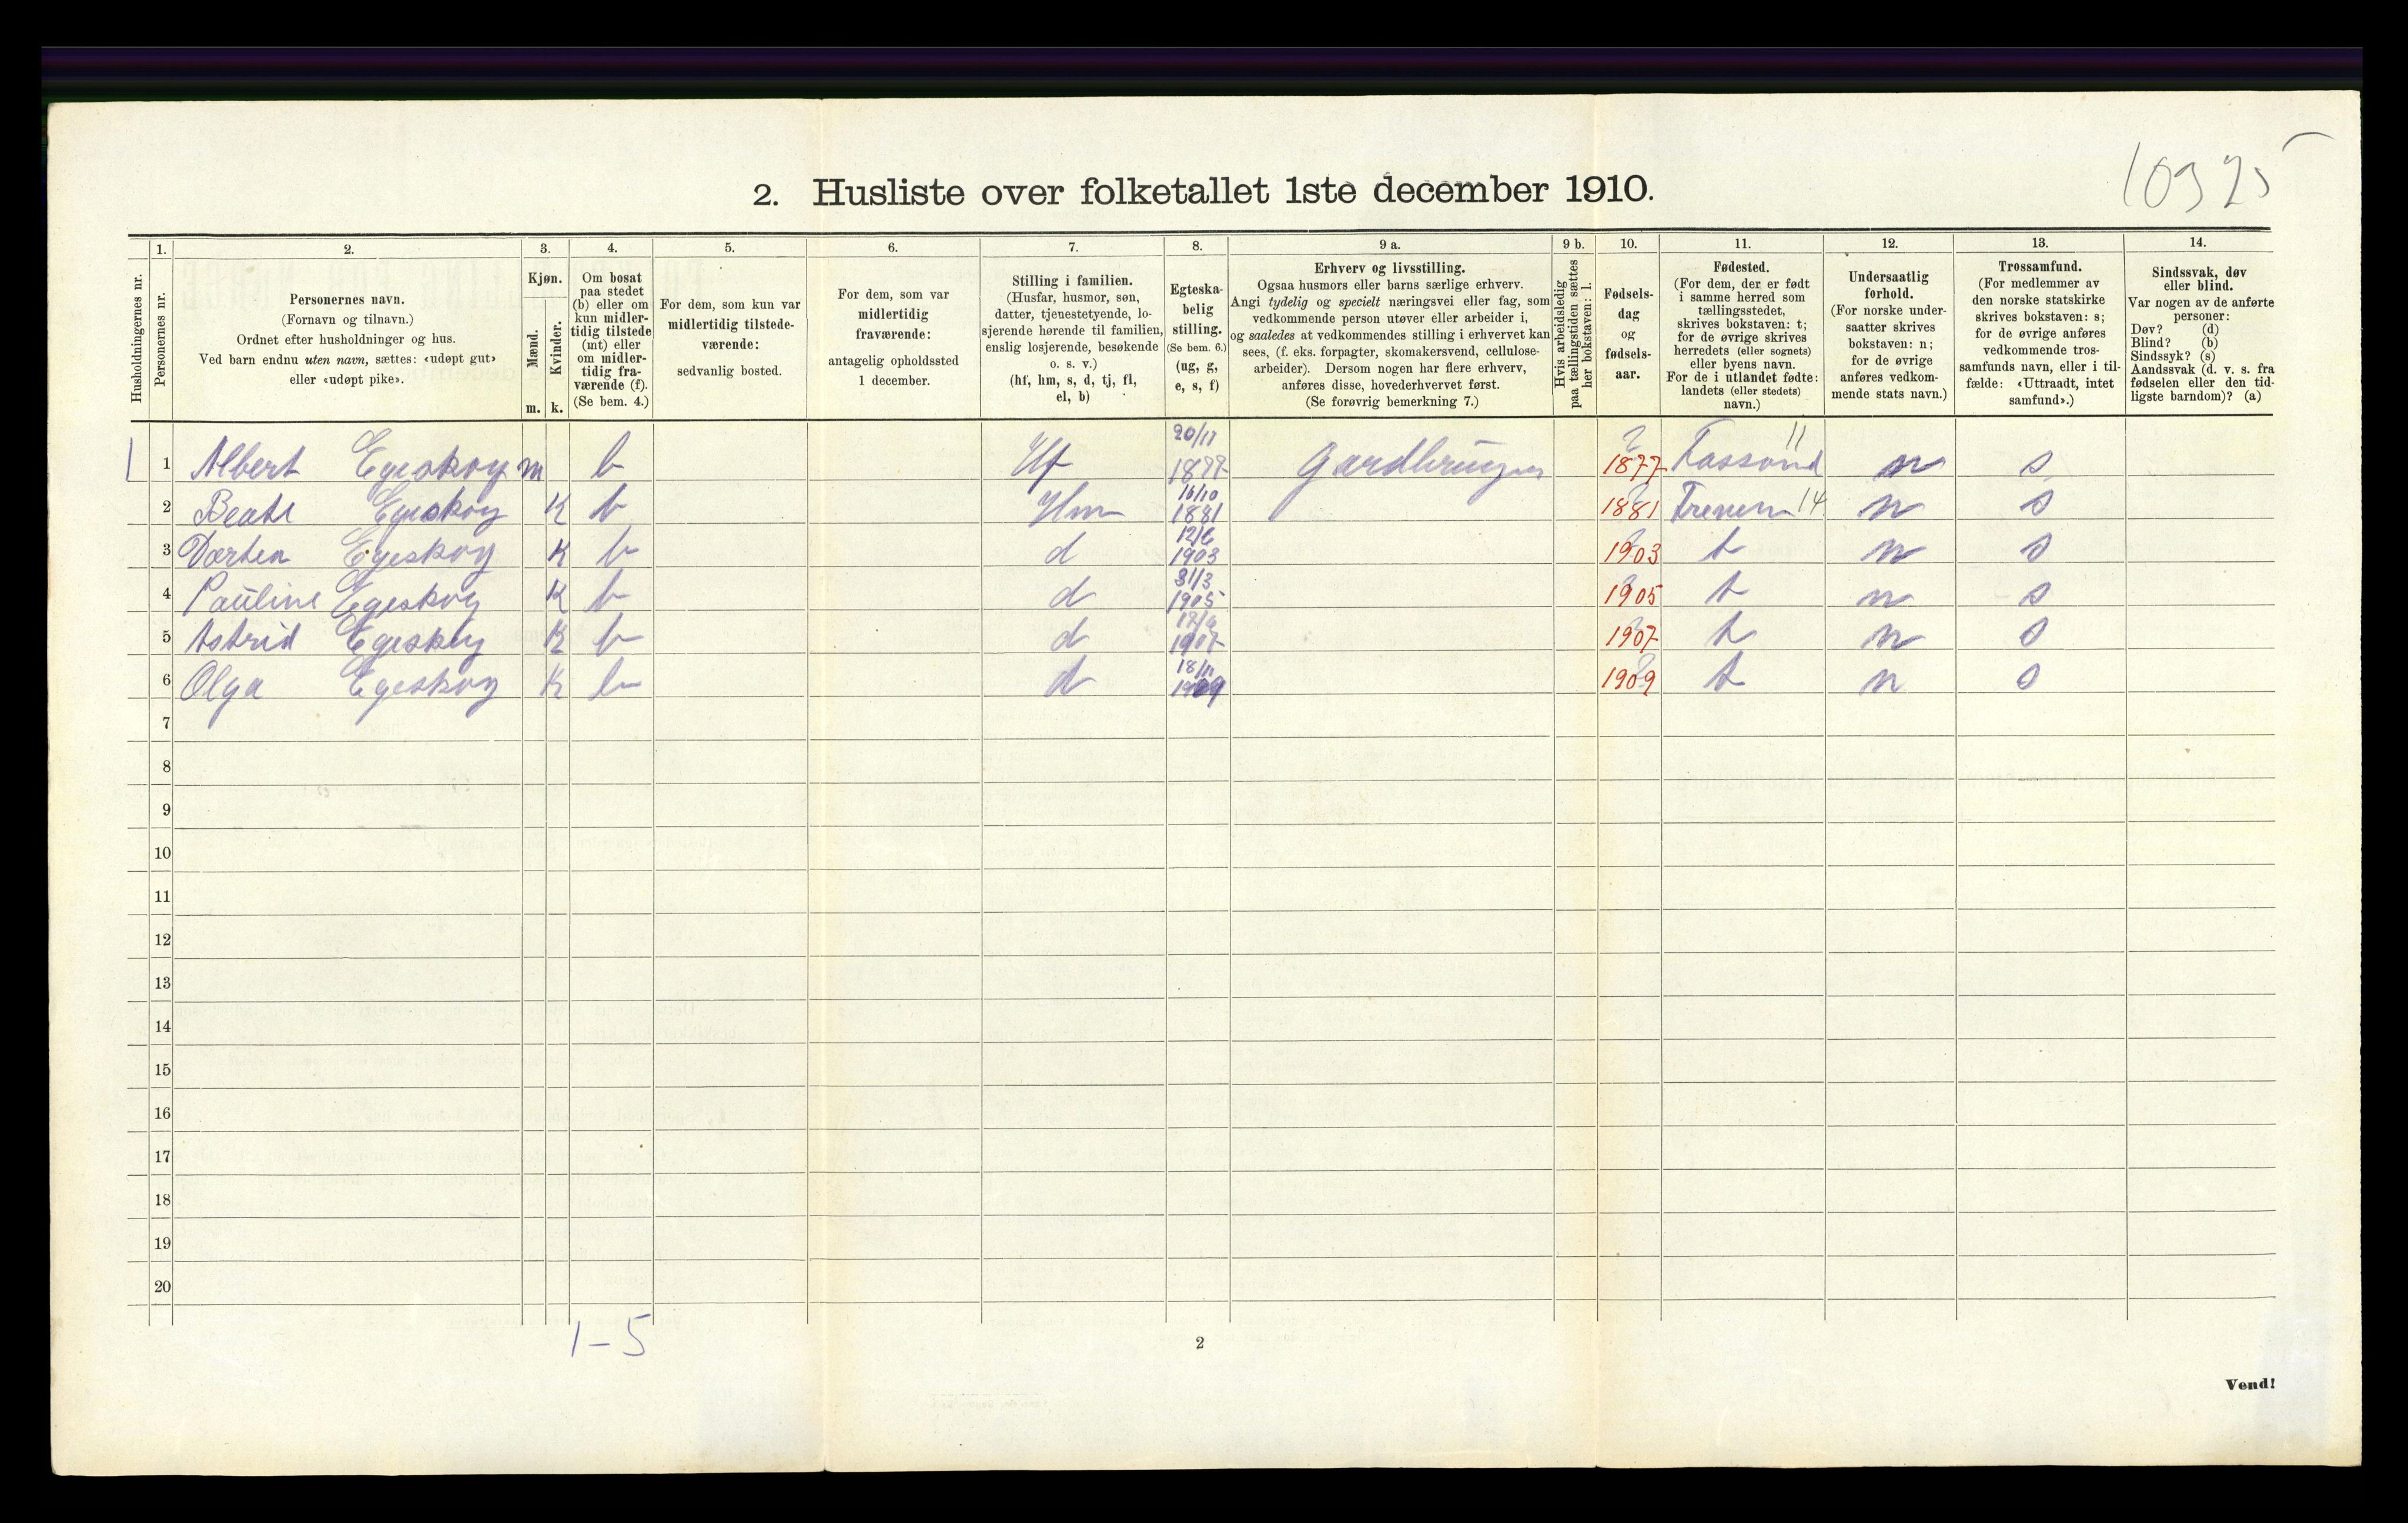 10325
2. Husliste over folketallet 1ste december 1910.
Husholdningernes nr.
1.
Personernes nr.
2.
Personernes navn.
(Fornavn og tilnavn.)
Ordnet efter husholdninger og hus.
Ved barn endnu uten navn, sættes: «udøpt gut»
eller «udøpt pike».
3.
Kjøn.
Mænd.
Kvinder.
m. k.
4.
Om bosat
paa stedet
(b) eller om
kun midler-
tidig tilstede
(mt) eller
om midler-
tidig fra-
værende (f).
(Se bem. 4.)
5.
For dem, som kun var
midlertidig tilstede-
værende:
sedvanlig bosted.
6.
For dem, som var
midlertidig
fraværende:
antagelig opholdssted
1 december.
7.
Stilling i familien.
(Husfar, husmor, søn,
datter, tjenestetyende, lo-
sjerende hørende til familien,
enslig losjerende, besøkende
o. s. v.)
(hf, hm, s, d, tj, fl,
el, b)
8.
Egteska-
belig
stilling.
(Se bem. 6.)
(ug, g,
e, s, f)
9 a.
Erhverv og livsstilling.
Ogsaa husmors eller barns særlige erhverv.
Angi tydelig og specielt næringsvei eller fag, som
vedkommende person utøver eller arbeider i,
og saaledes at vedkommendes stilling i erhvervet kan
sees, (f. eks. forpagter, skomakersvend, cellulose-
arbeider). Dersom nogen har flere erhverv,
anføres disse, hovederhvervet først.
(Se forøvrig bemerkning 7.)
9 b.
Hvis arbeidsledig
paa tællingstiden sættes
her bokstaven: l.
10.
Fødsels-
dag
og
fødsels-
aar.
11.
Fødested.
(For dem, der er født
i samme herred som
tællingsstedet,
skrives bokstaven: t;
for de øvrige skrives
herredets (eller sognets)
eller byens navn.
For de i utlandet fødte:
landets (eller stedets)
navn.)
12.
Undersaatlig
forhold.
(For norske under-
saatter skrives
bokstaven: n;
for de øvrige
anføres vedkom-
mende stats navn.)
13.
Trossamfund.
(For medlemmer av
den norske statskirke
skrives bokstaven: s;
for de øvrige anføres
vedkommende tros-
samfunds navn, eller i til-
fælde: «Uttraadt, intet
samfund».)
14.
Sindssvak, døv
eller blind.
Var nogen av de anførte
personer:
Døv? (d)
Blind? (b)
Sindssyk? (s)
Aandssvak (d. v. s. fra
fødselen eller den tid-
ligste barndom)? (a)
1 Albert Egeskog m b Hf 20/11 1877 Gardbruger 1877 11 n s
2 Beate Egeskog K b Hm 16/10 1881 1881 14 n s
3 Dortea Egeskog K b d 12/6 1903 1903 t n s
4 Pauline Egeskog K b d 31/3 1905 1905 t n s
5 Astrid Egeskog K b d 1907 1907 t n s
6 Olga Egeskog K b d 18/11 1909 1909 t n s
7
8
9
10
11
12
13
14
15
16
17
18
19
20
1-5
2
Vend!